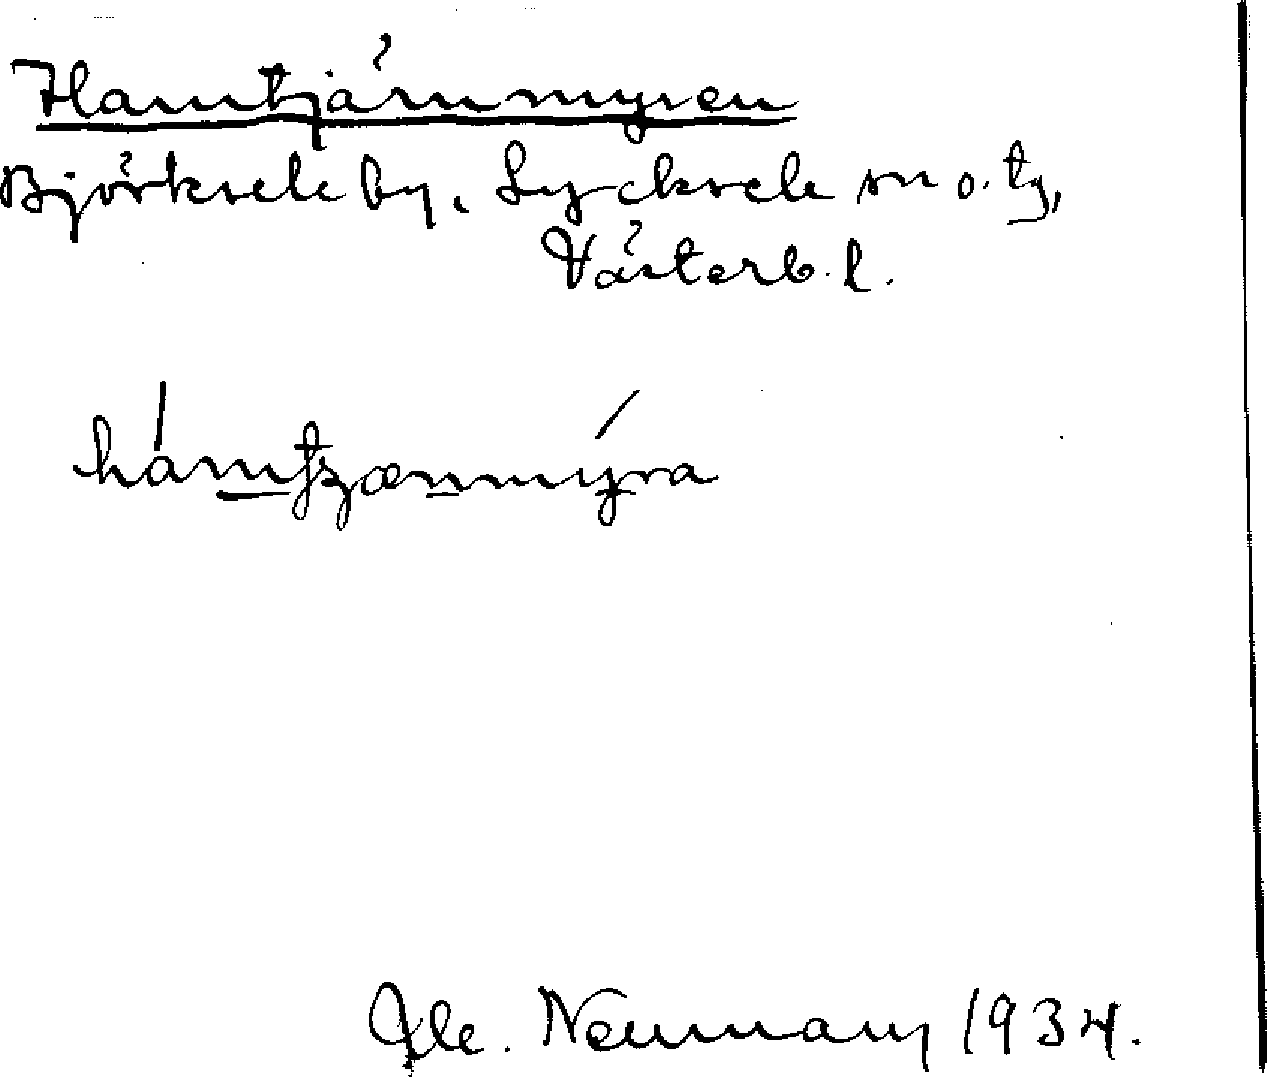 Hamtjärnmyren
Björksele by, Lycksele sn o. tg,
Västerb. l.
hámtʃænmýra
Neumann 1934.